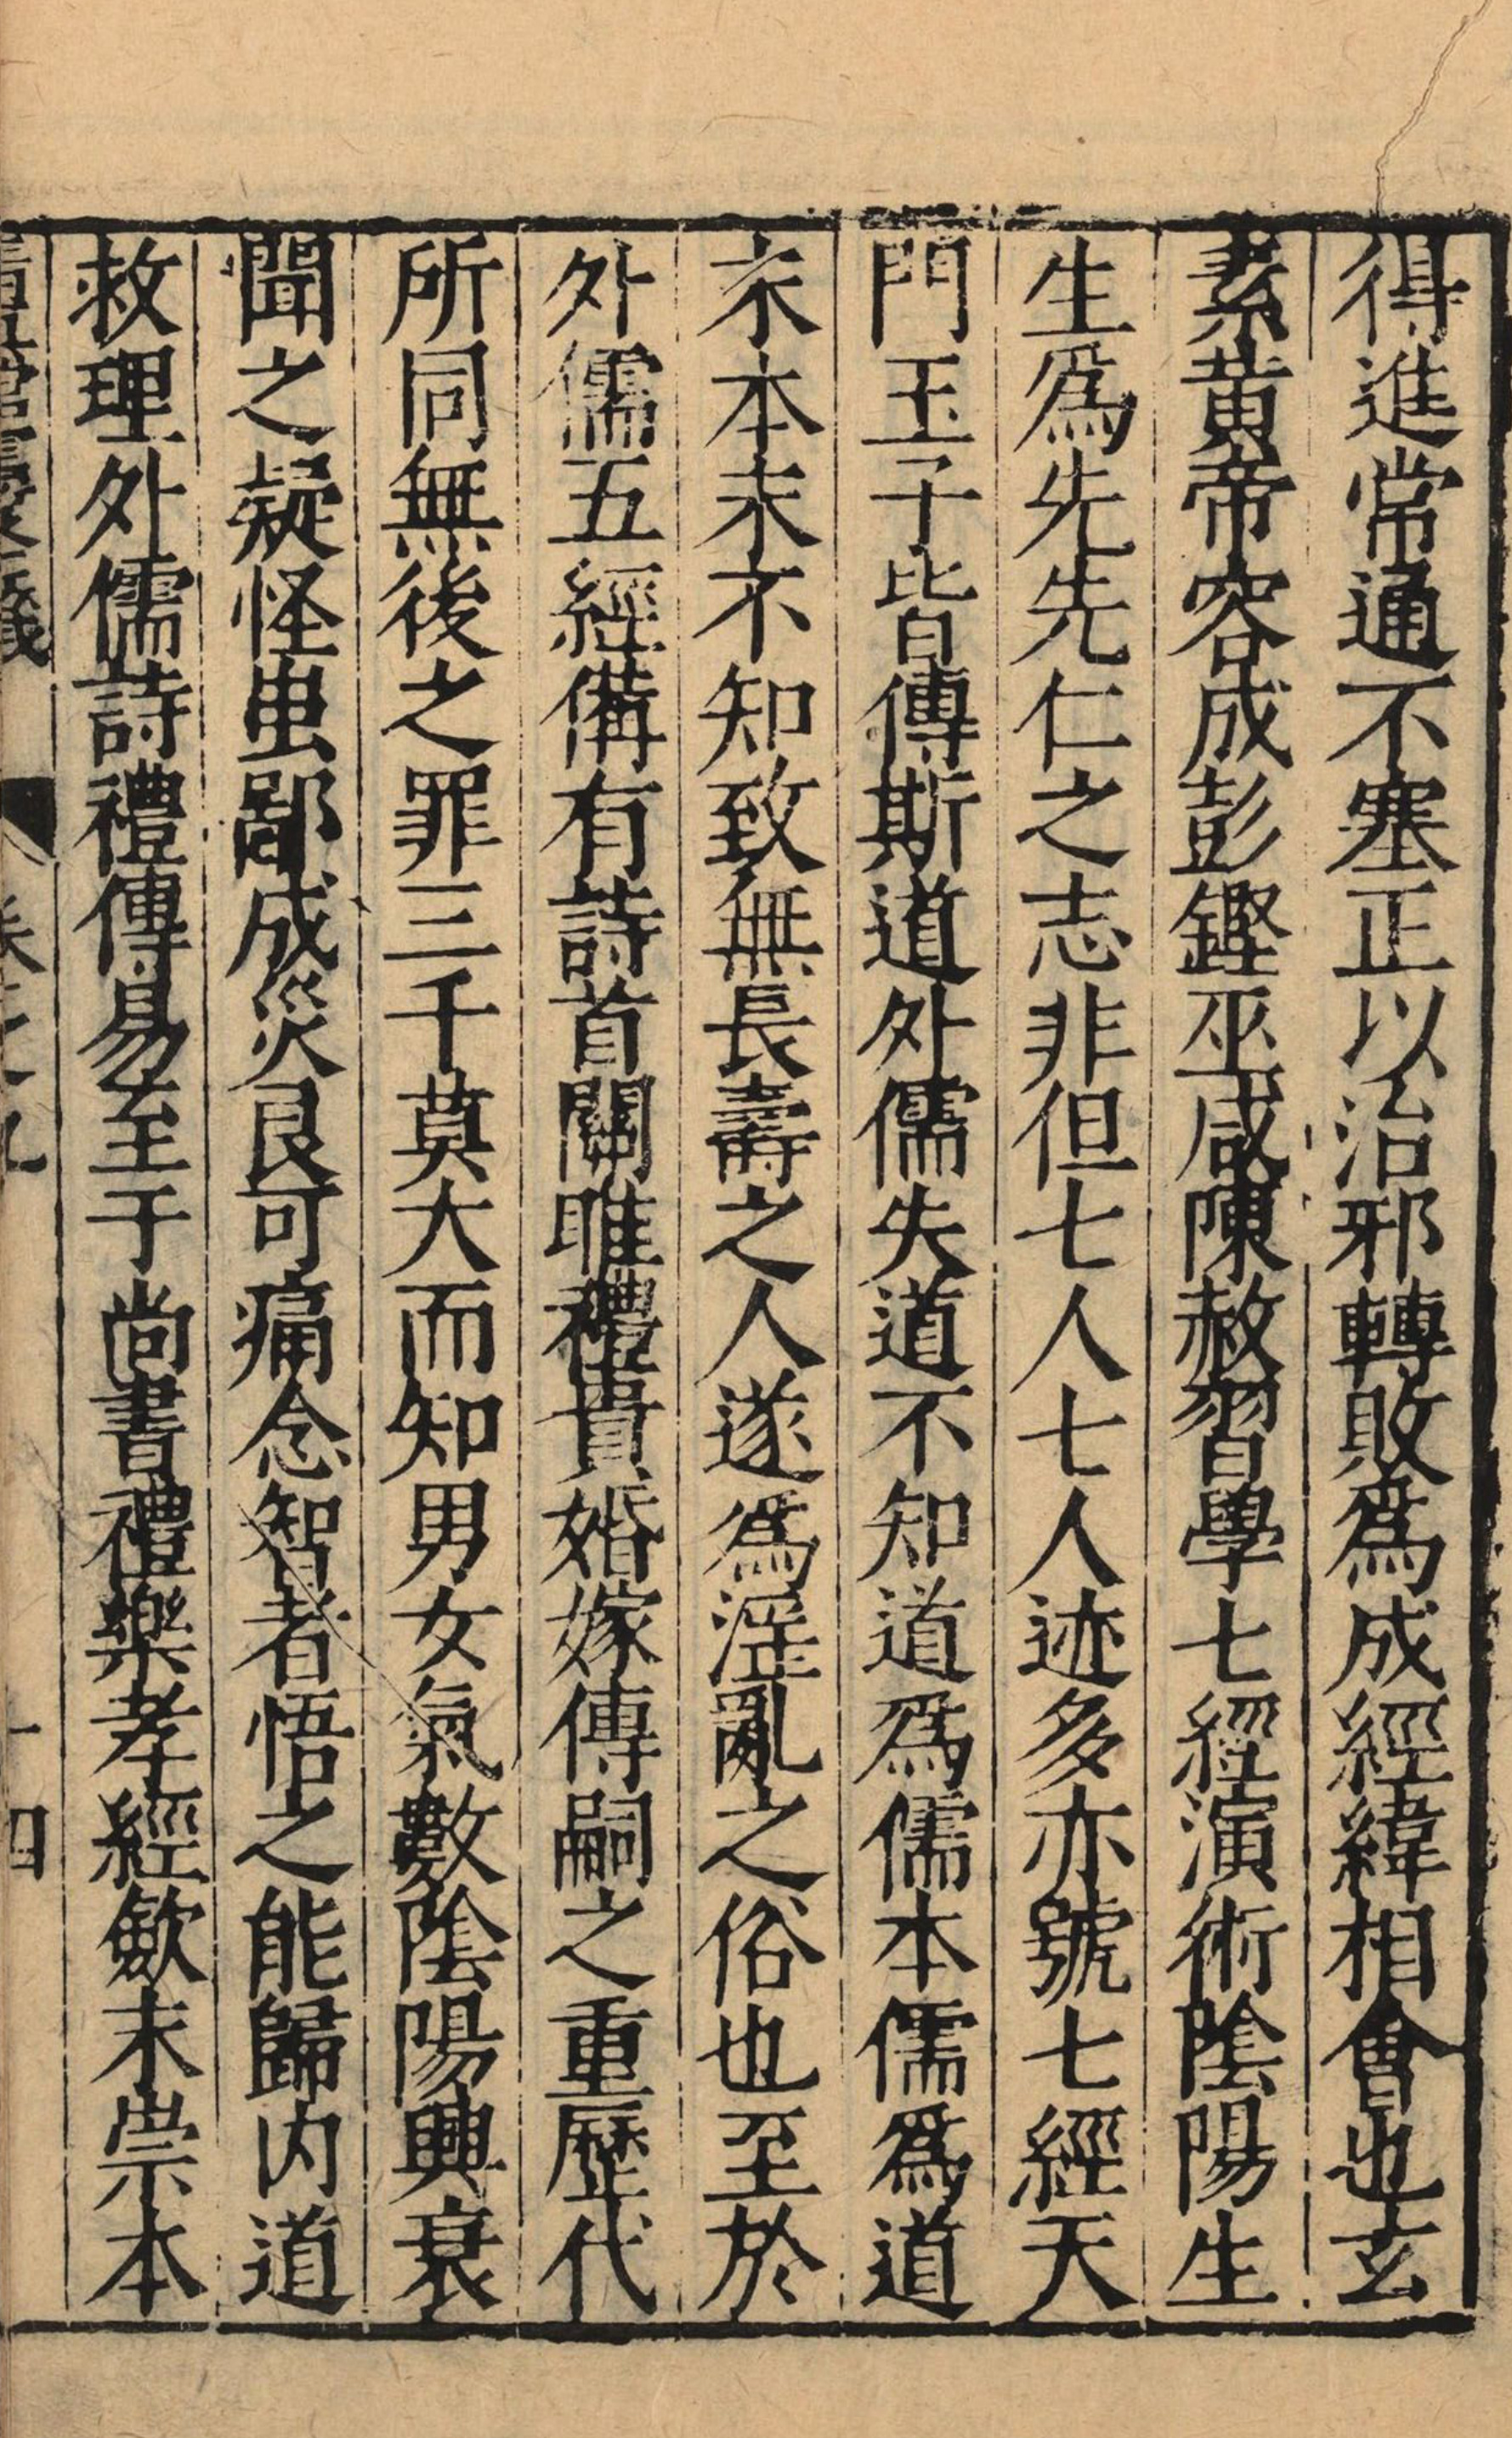 得進常通不塞正以治邪轉敗爲成經緯相會也玄
素黄帝容成彭鏗巫咸陳赦習學七經演術陰陽生
生爲先先仁之志非但七人七人迹多亦號七經天
門玉子皆傳斯道外儒失道不知道爲儒本儒爲道
末本末不知致無長壽之人遂爲淫亂之俗也至於
外儒五經備有詩首關雎禮貴婚嫁傳嗣之重歷代
所同無後之罪三千莫大而知男女氣數陰陽興衰
聞之疑怪虫鄙成災良可痛念智者悟之能歸内道
救理外儒詩禮傳易至于尚書禮樂孝經歛末崇本